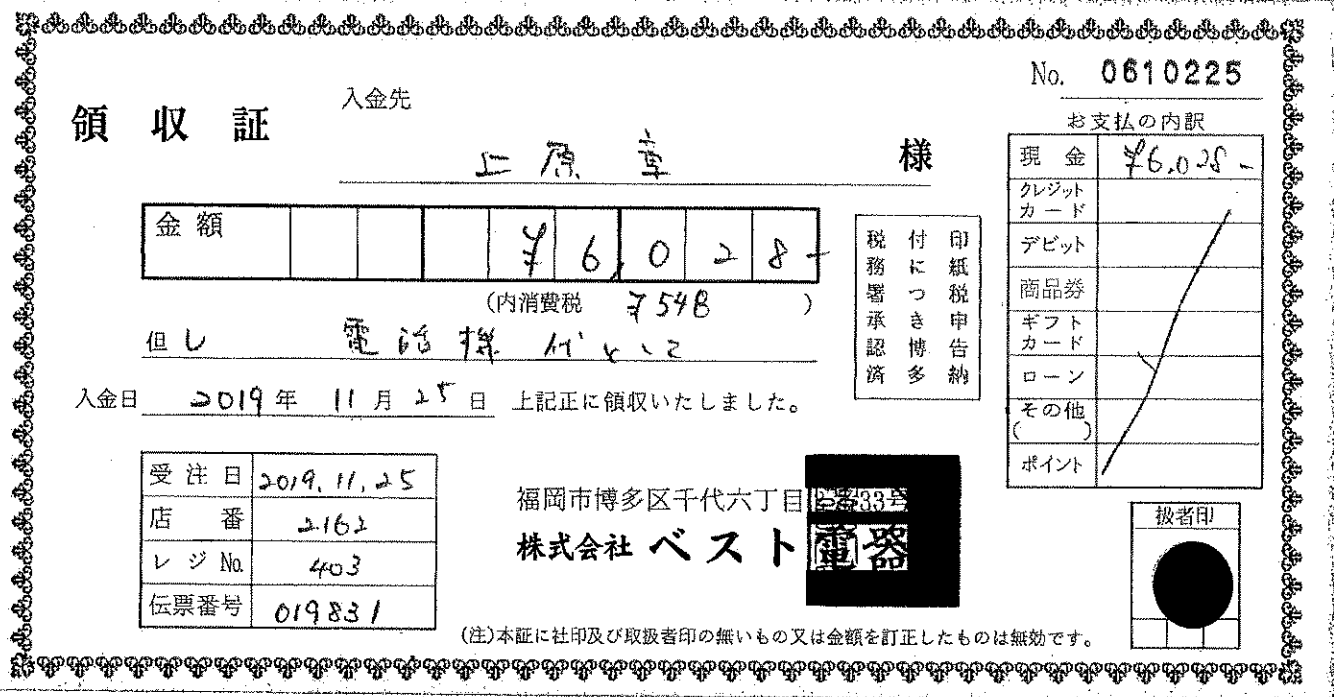 No. 0610225
領収証
入金先
上原 章 様
金額 ¥6,028-
(内消費税 ¥548 )
但し 電話機代として
入金日 2019年 11月 25日 上記正に領収いたしました。
印紙税申告納
付につき博多
税務署承認済
お支払の内訳
現金 ¥6,028-
クレジットカード
デビット
商品券
ギフトカード
ローン
その他
( )
ポイント
受注日 2019.11.25
店番 2162
レジNo. 403
伝票番号 019831
福岡市博多区千代六丁目2番33号
株式会社 ベスト電器
扱者印
(注)本証に社印及び取扱者印の無いもの又は金額を訂正したものは無効です。